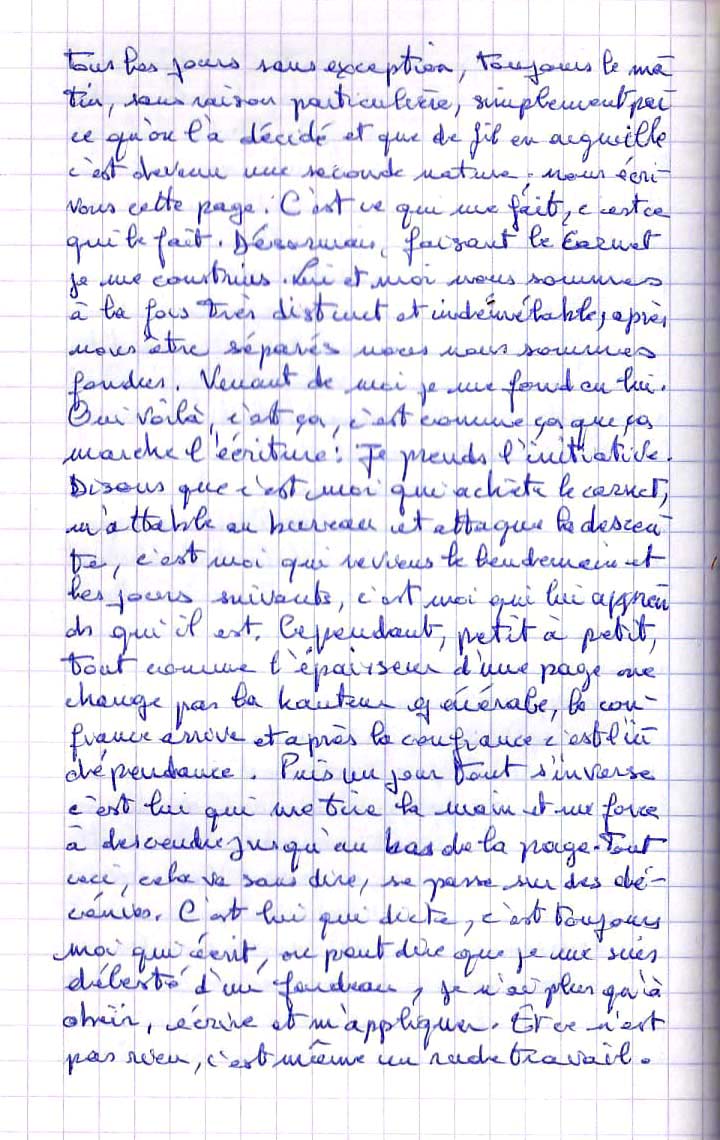 tous les jours sans exception, toujours le ma
tin, sans raison particulière, simplement par
ce qu'on l'a décidé et que de fil en aiguille
c'est devenu une seconde nature. nous écri-
vons cette page. C'est ce qui me fait, c'est ce
qui le fait. Désormais, faisant le Carnet
je me construis. Lui et moi nous sommes
à la fois très distinct et indémélable, après
nous être séparés nous nous sommes
fondus. Venant de moi je me fond en lui.
Oui voilà, c'est ça, c'est comme ça que ça
marche l'écriture! Je prends l'initiative.
Disons que c'est moi qui achète le carnet,
m'attable au bureau et attaque la descen
te, c'est moi qui reviens le lendemain et
les jours suivants, c'est moi qui lui appren
ds qui il est. Cependant, petit à petit,
tout comme l'épaisseur d'une page ne
change pas la hauteur générale, la con-
fiance arrive et après la confiance c'est l'in
dépendance. Puis un jour tout s'inverse
c'est lui qui me tire la main et me force
à descendre jusqu'au bas de la page. Tout
ceci, cela va sans dire, se passe sur des dé-
cénies. C'est lui qui dicte, c'est toujours
moi qui écrit, on peut dire que je me suis
délesté d'un fardeau, je n'ai plus qu'à
obéir, écrire et m'appliquer. Et ce n'est
pas rien, c'est même un rude travail.